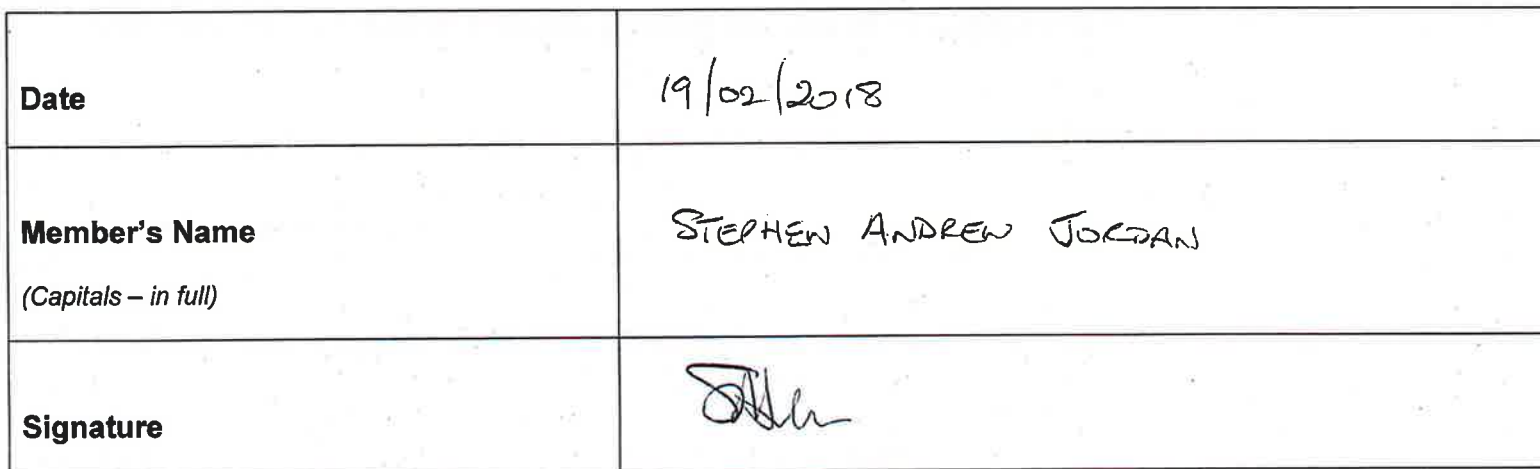 Date
19/02/2018
Member's Name
(Capitals – in full)
STEPHEN ANDREW JORDAN
Signature